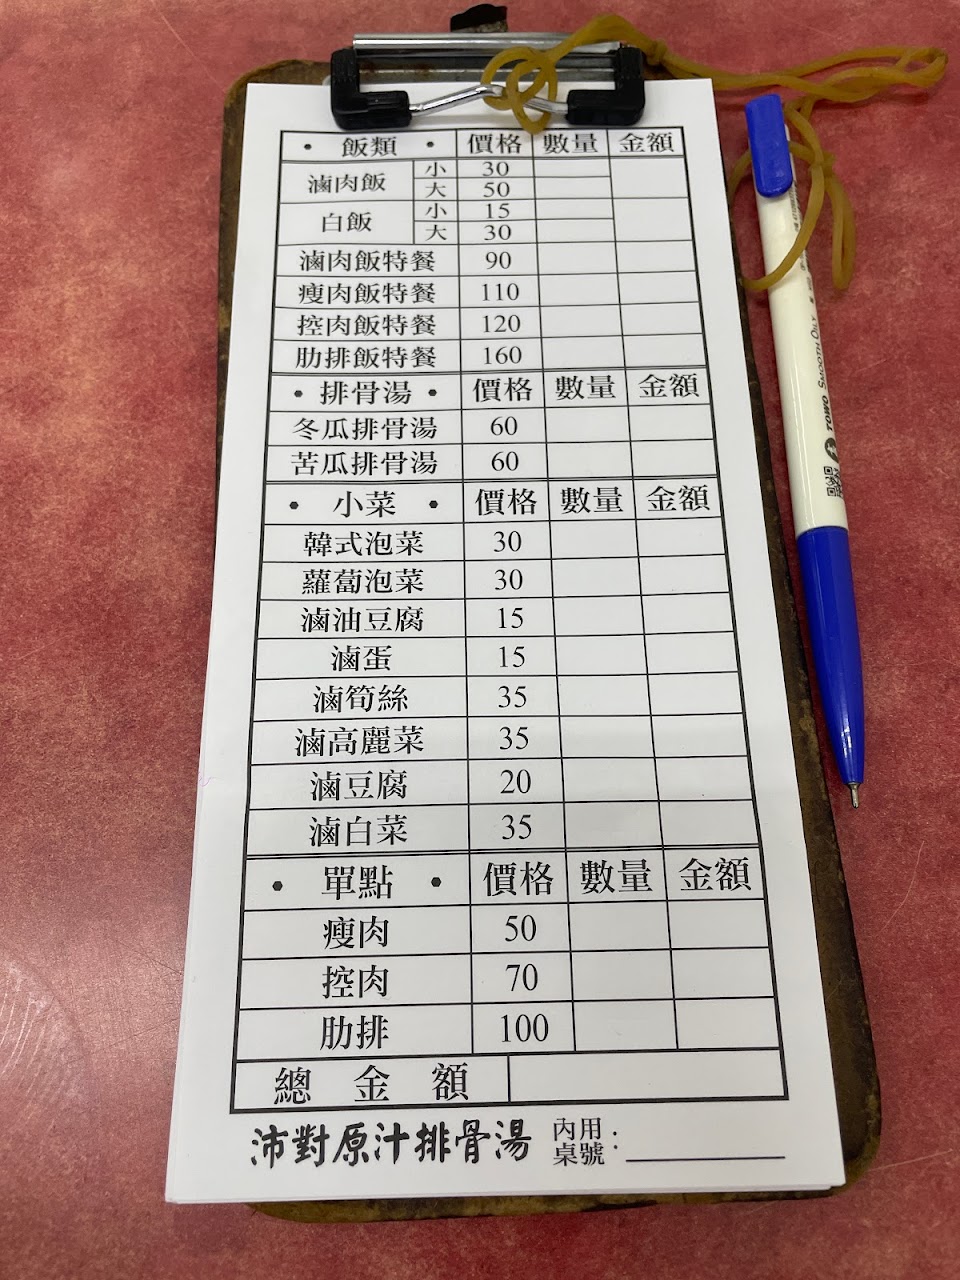 • 飯類 • 價格 數量 金額
滷肉飯 小 30
大 50
白飯 小 15
大 30
滷肉飯特餐 90
瘦肉飯特餐 110
控肉飯特餐 120
肋排飯特餐 160
• 排骨湯 • 價格 數量 金額
冬瓜排骨湯 60
苦瓜排骨湯 60
• 小菜 • 價格 數量 金額
韓式泡菜 30
蘿蔔泡菜 30
滷油豆腐 15
滷蛋 15
滷筍絲 35
滷高麗菜 35
滷豆腐 20
滷白菜 35
• 單點 • 價格 數量 金額
瘦肉 50
控肉 70
肋排 100
總金額
沛對原汁排骨湯 內用:
桌號:
TOWO SMOOTH OILY